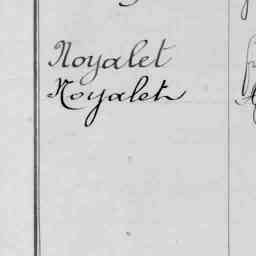 Noyalet
Noyalet